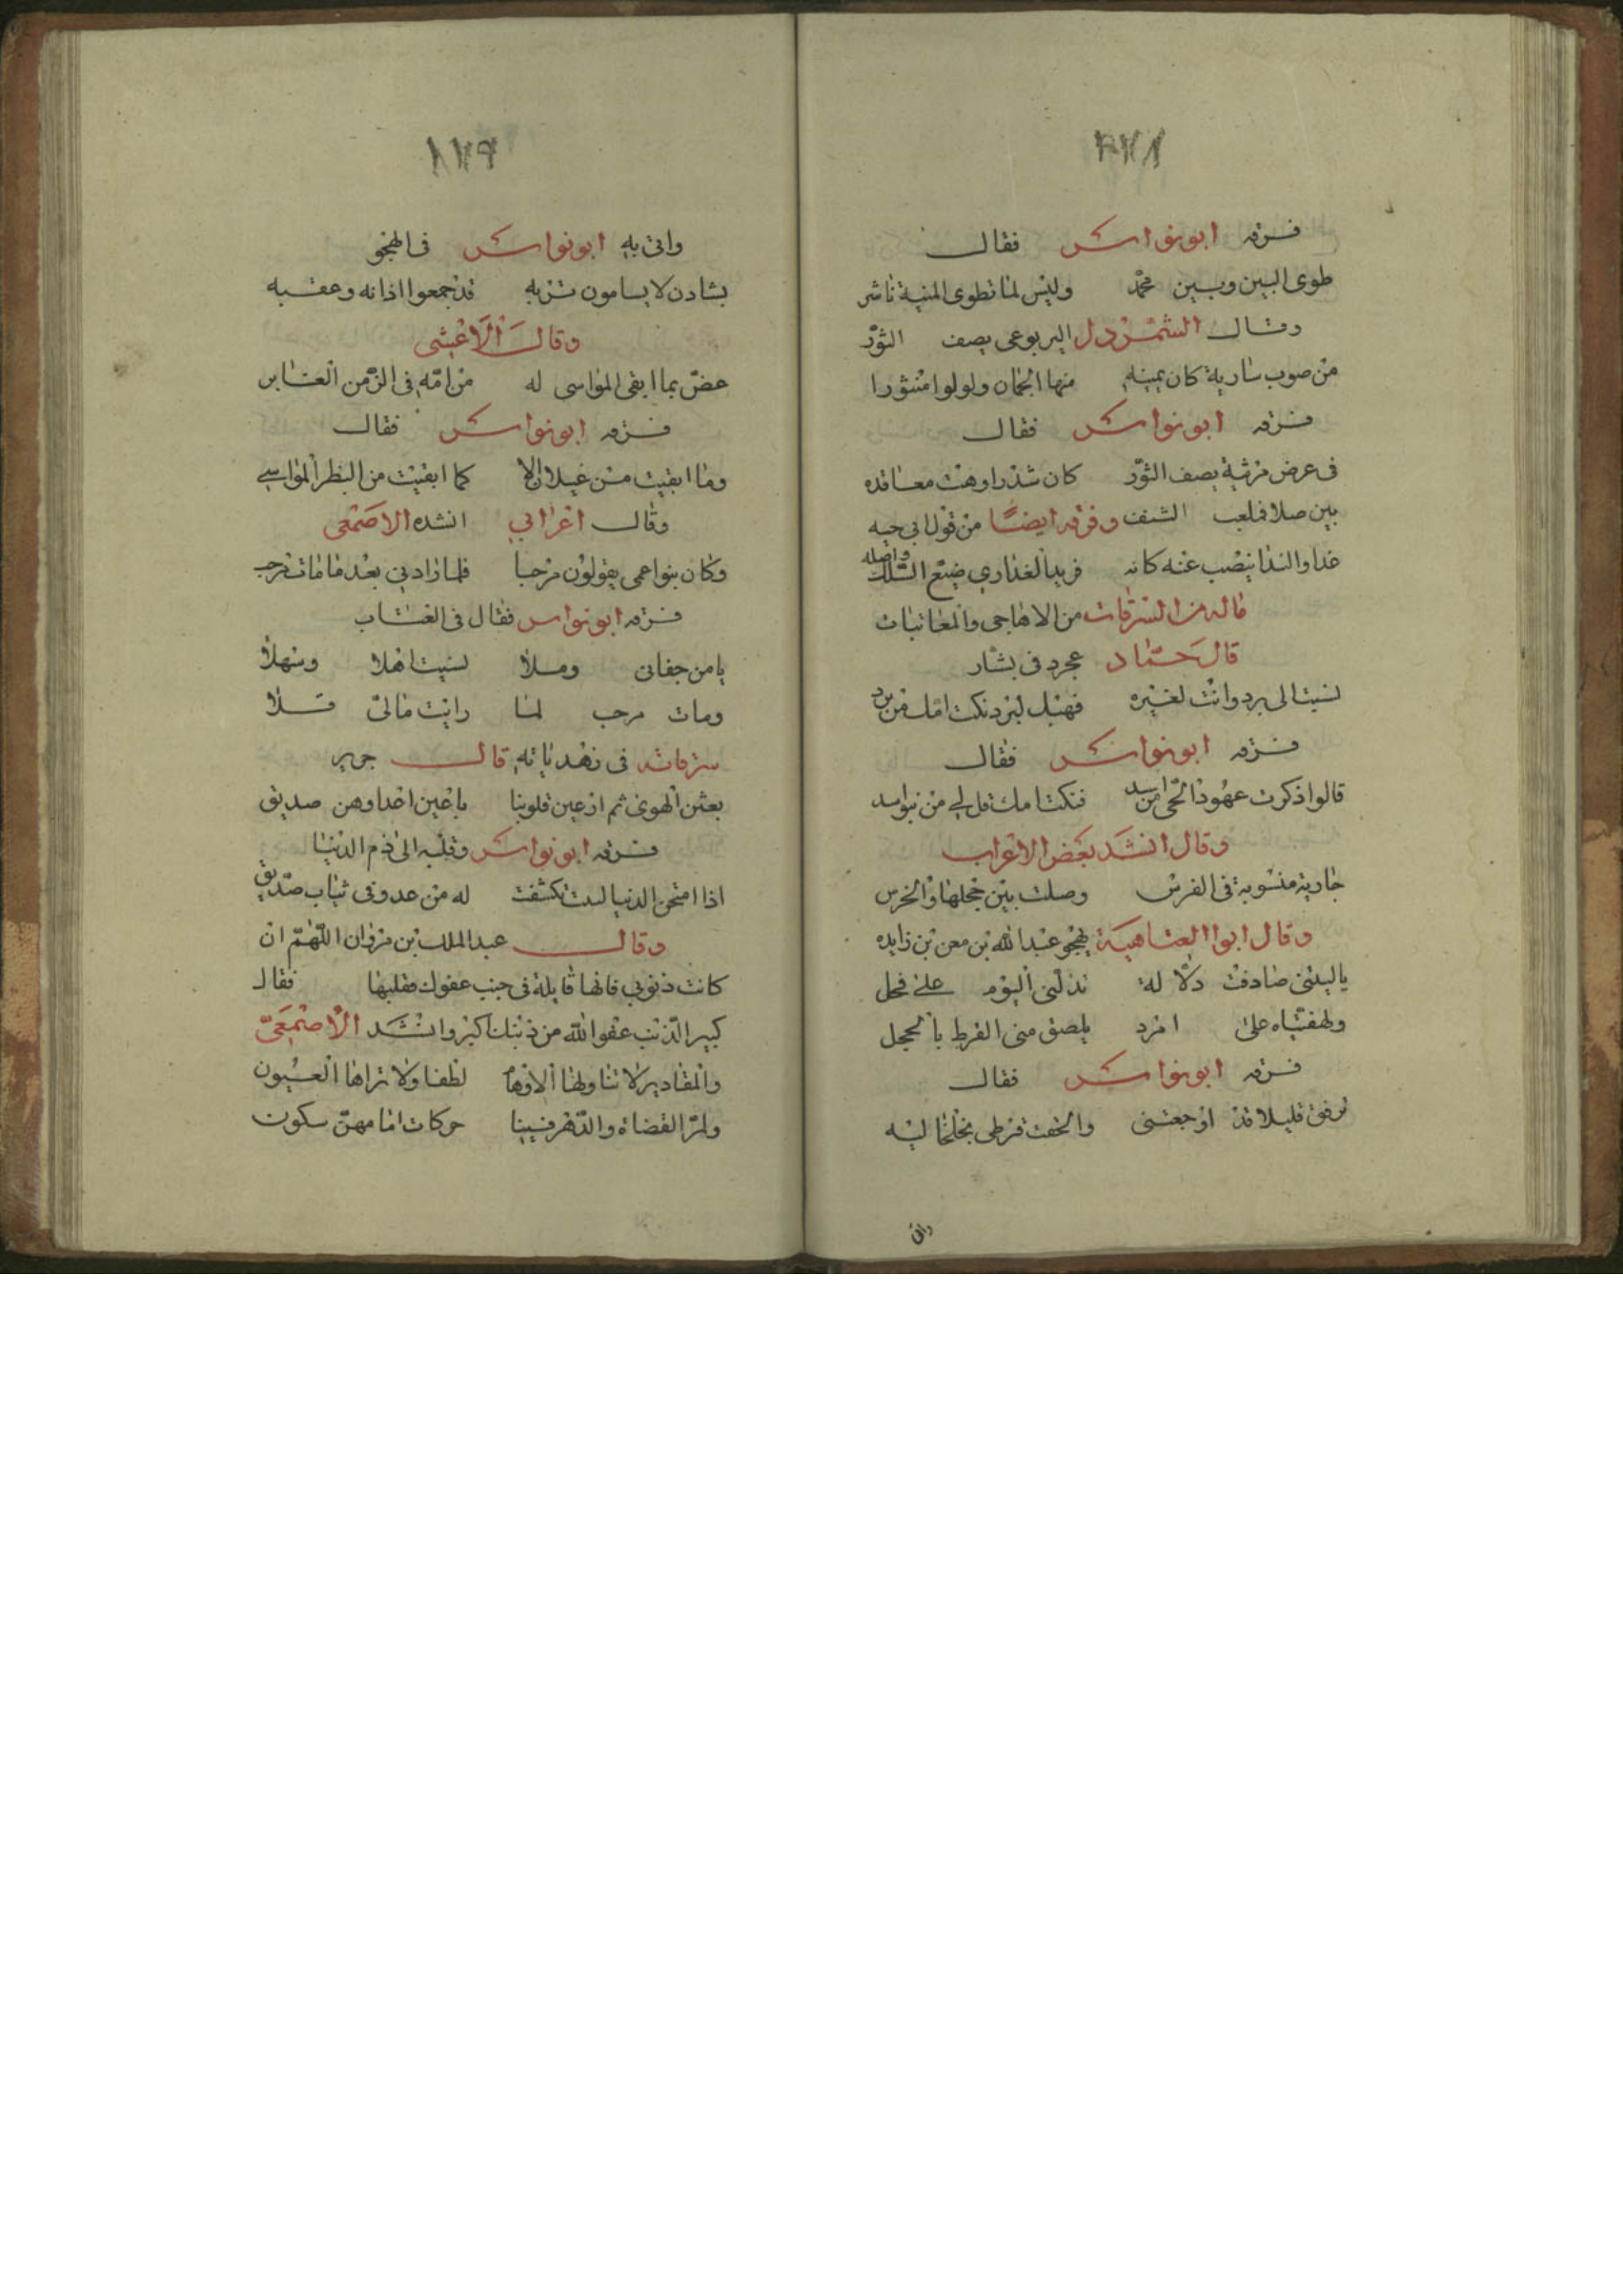 فسرقه ابو نواس فقال
طوى البين وبين محمد وليس لما تطوى المنية ناشر
وقال الشمردل اليربوعى يصف الثور
من صوب سارية كان بمينه منها الجمان ولولوا منثورا
فسرقه ابو نواس فقال
فى عرض مرثية يصف الثور كان شذرا وهت معاقده
بين صلاه فلعب الشنف وفرقه ايضا من قول ابى حيه
غدا والندا ينصب عنه كانه فريد العذارى ضيع السلك واصله
ماله من السرقات من الاهاجى والمعاتبات
قال حماد عجرد فى بشار
نسبت الى برد وانت لغيره فهبك لبرد نكت امك من برد
فسرقه ابو نواس فقال
قالوا ذكرت عهود الحى من اسد فنكت امك قل لى من بنو اسد
وقال انشد بعض الاعراب
جارية منسوبة فى الفرس وصلت بين حجلها والخرس
وقال ابوا العتاهية يهجو عبد الله بن معن بن زايده
ياليتنى صادفت دلا له تدلنى اليوم على فحل
ولهفتاه على امرد يلصق منى القرط بالحجل
فسرقه ابو نواس فقال
ترفق قليلا قد اوجعتنى والحفت قرطى بخلخاليه
واتى
١٣٩
واتى به ابو نواس فى الهجو
بشادن لا يسامون تزيه قد جمعوا اذانه وعقبه
وقال الاعشى
عض بما ابقى المواسى له من امه فى الزمن الغابر
فسرقه ابو نواس فقال
وما ابقيت من غيلان الا كما ابقيت من البظر المواسى
وقال اعرابى انشده الاصمعى
وكان بنو اعمى يقولون مرحبا فلما راونى بعد ما مات مرحب
فسرقه ابو نواس فقال فى العتاب
يا من جفانى وملا نسيت اهلا وسهلا
ومات مرحب لما رايت مالى قلا
سرقاته فى زهدياته قال جرير
بعثن الهوى ثم ارتمين قلوبنا باعين اعدا وهن صديق
فسرقه ابو نواس وقلبه الى ذم الدنيا
اذا امتحن الدنيا لبيب تكشفت له من عدو فى ثياب صديق
وقال عبد الملك بن مروان اللهم ان
كانت ذنوبى فانها قابلة فى جنب عفوك فقلبها فقال
كبير الذنب عفو الله من ذنبك اكبر وانشد الاصمعى
والمقادير لا تناولها الاوهام لطفا ولا تراها العيون
ولمر القضاة والدهر فينا حركات امامهن سكون